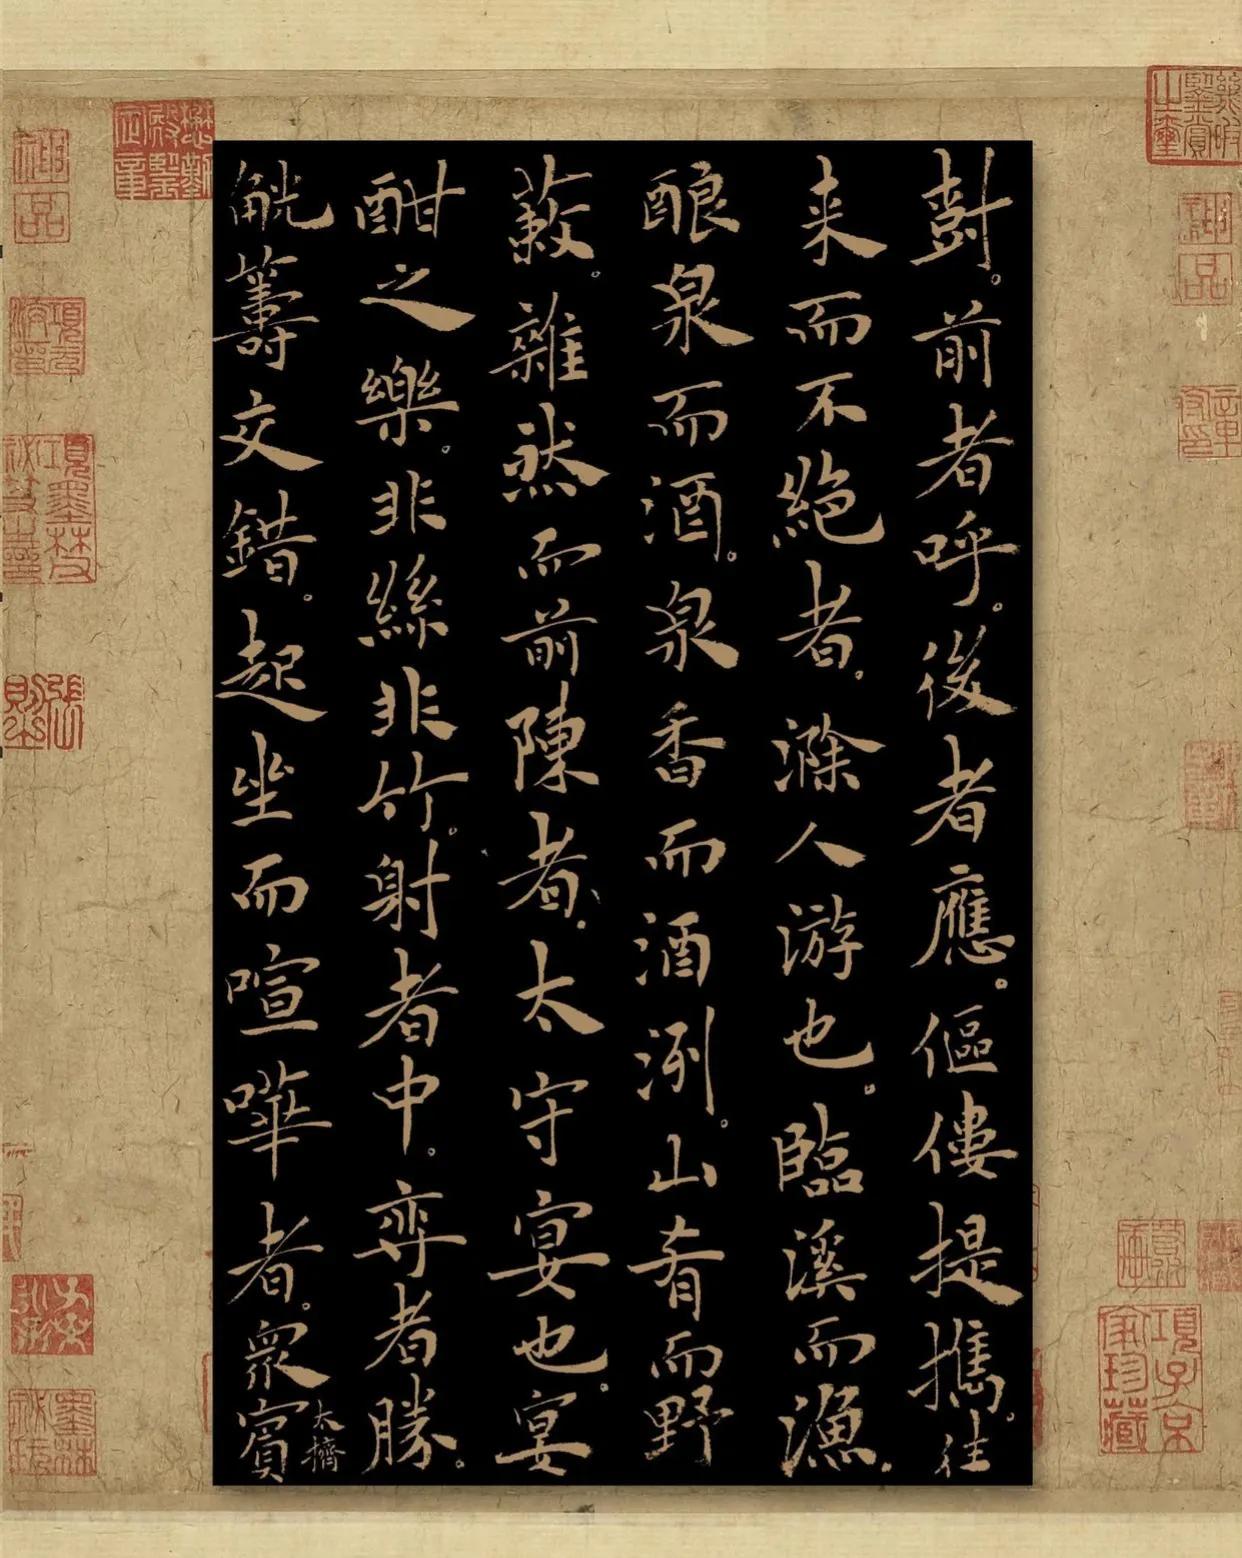 尌。前者呼。後者應。傴僂提攜。往
来而不絕者。滁人游也。臨溪而漁。
酿泉而酒。泉香而酒洌。山肴而野
蔌。雜然而前陳者。太守宴也。宴
酣之樂。非絲非竹。射者中。弈者勝。
觥籌交錯。起坐而喧嘩者。眾賓
太擠
神品
項子京家珍藏
神品